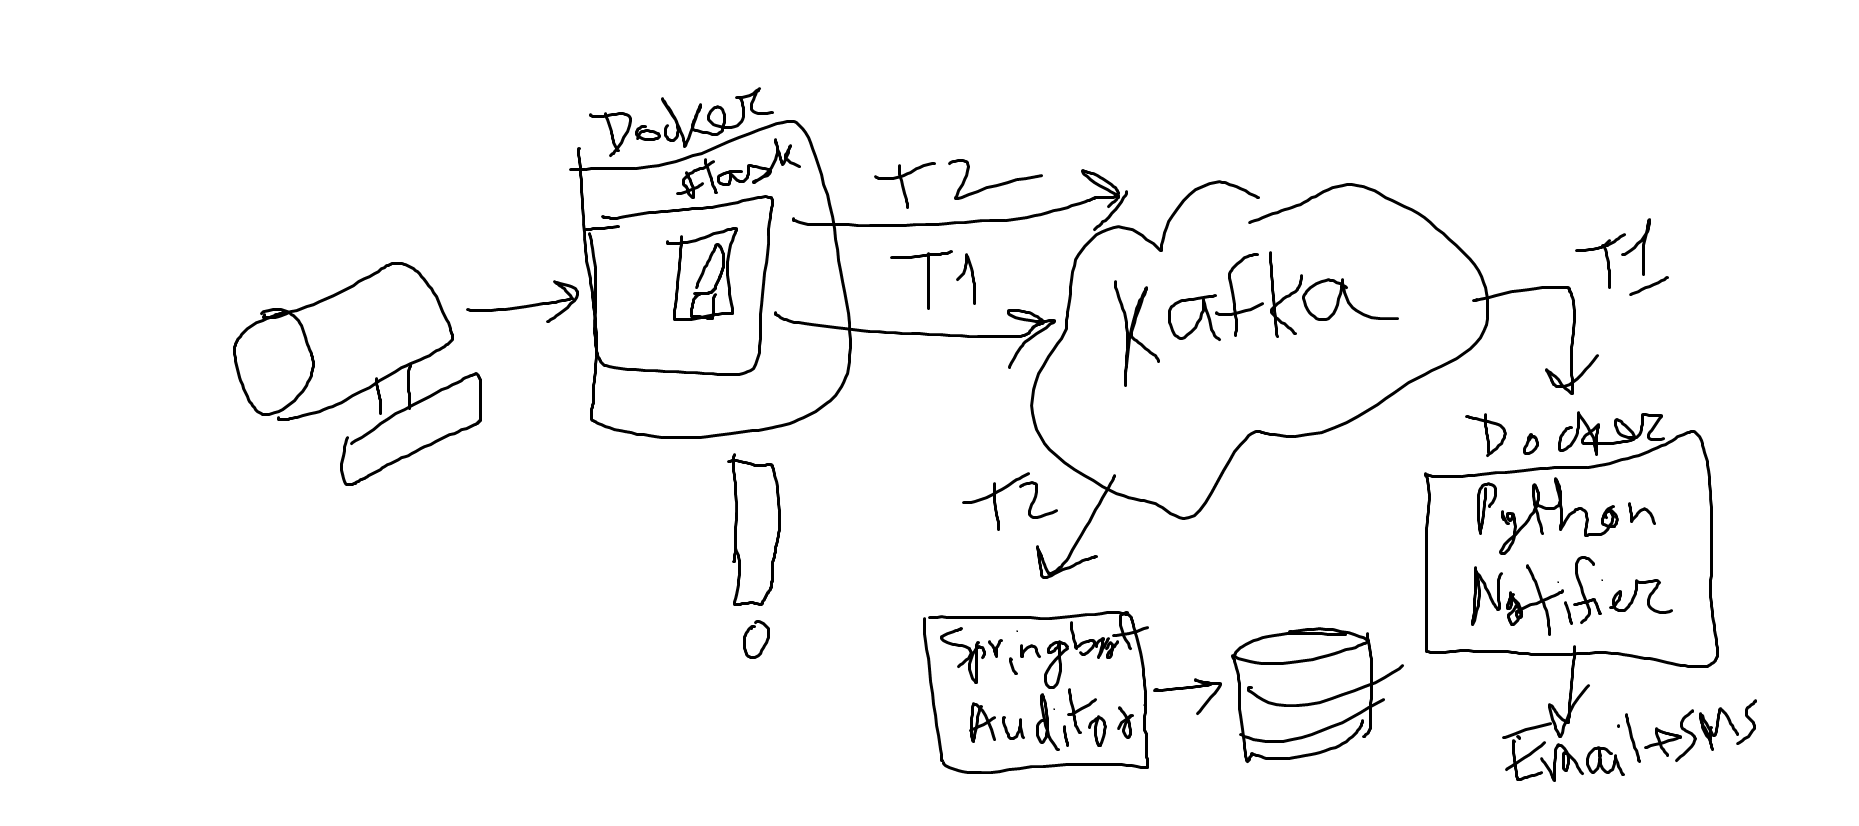 Docker
flask
T2
T1
Kafka
T1
T2
Docker
Python
Notifier
Springboot
Auditor
Email+SMS